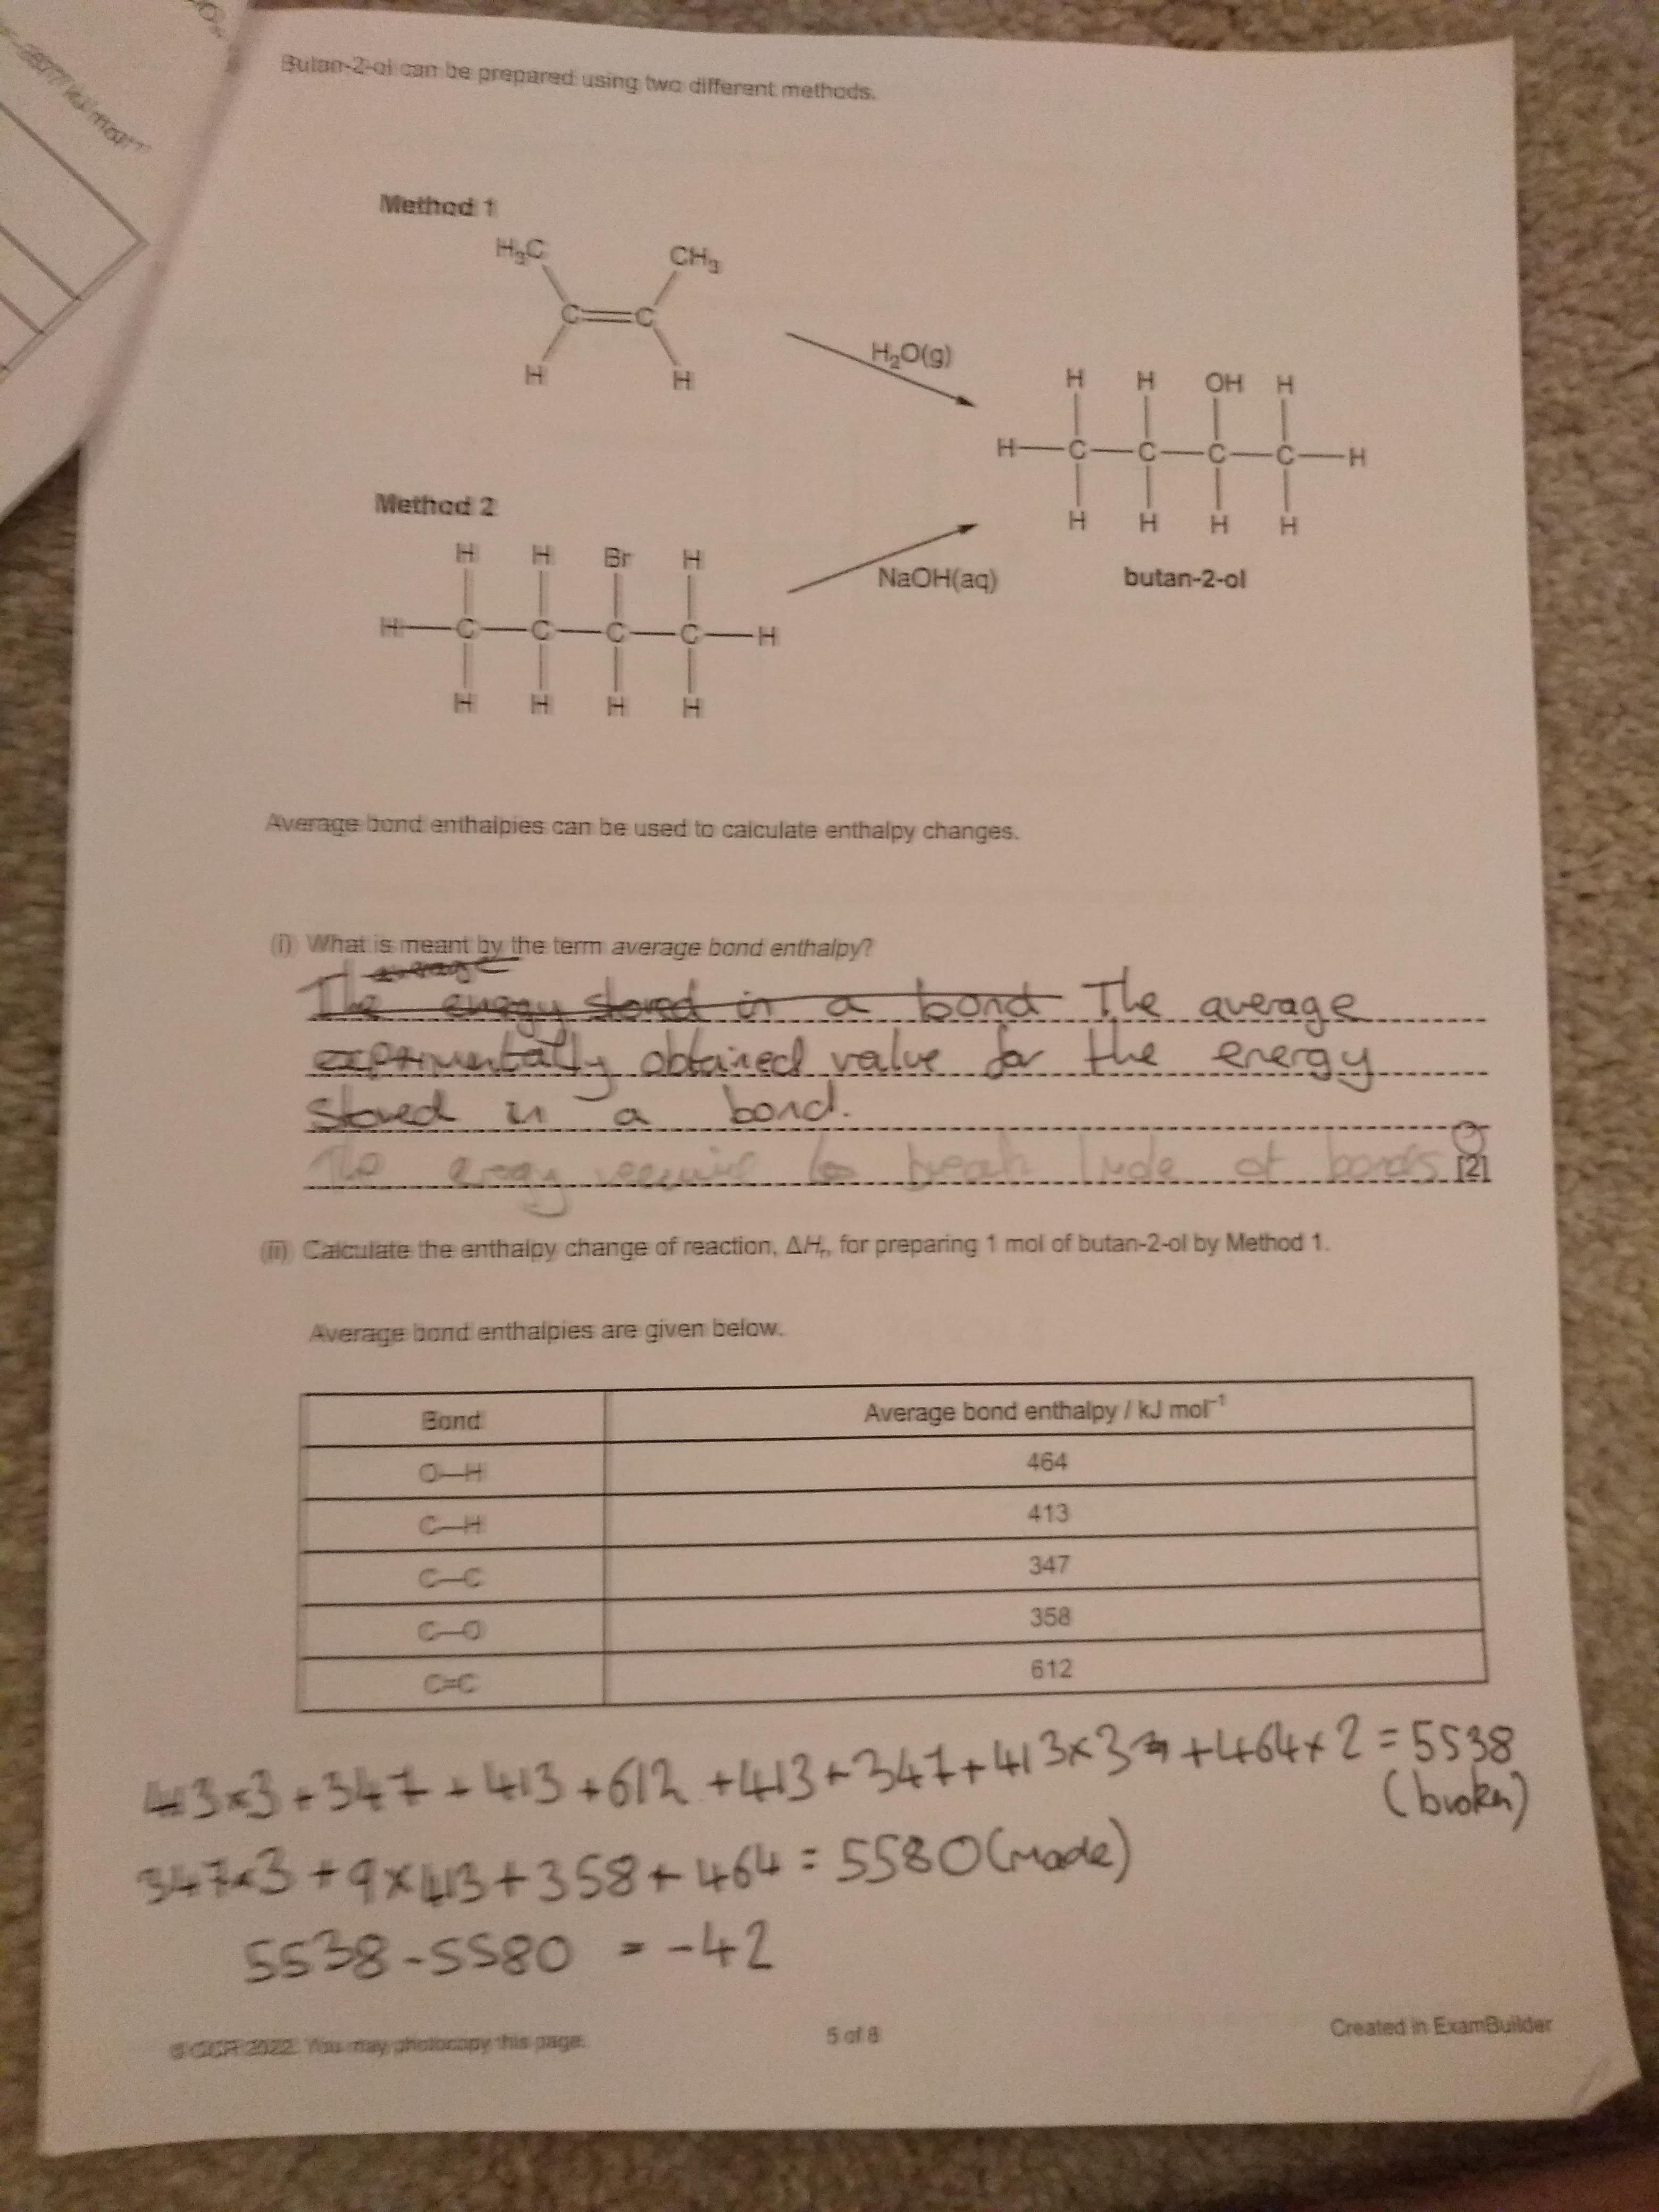 Butan-2-ol can be prepared using two different methods.
Method 1
H₃C CH₃
C C
H H
H₂O(g)
H H OH H
H C C C C H
H H H H
butan-2-ol
Method 2
H H Br H
H C C C C H
H H H H
NaOH(aq)
Average bond enthalpies can be used to calculate enthalpy changes.
(i) What is meant by the term average bond enthalpy?
average
The energy stored in a bond The average
experimentally obtained value for the energy
stored in a bond.
The energy require to break 1 mole of bonds
[2]
(ii) Calculate the enthalpy change of reaction, ΔHr, for preparing 1 mol of butan-2-ol by Method 1.
Average bond enthalpies are given below.
Bond Average bond enthalpy / kJ mol⁻¹
O–H 464
C–H 413
C–C 347
C–O 358
C=C 612
413×3 + 347 + 413 + 612 + 413 + 347 + 413×3 + 464×2 = 5538
(broken)
347×3 + 9×413 + 358 + 464 = 5580 (made)
5538 - 5580 = -42
© OCR 2022. You may photocopy this page.
5 of 8
Created in ExamBuilder